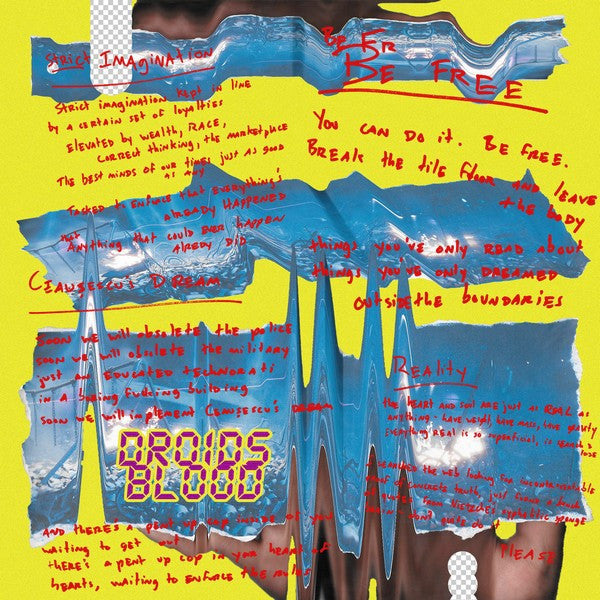 Strict Imagination
Strict imagination kept in line
by a certain set of loyalties
Elevated by wealth, race,
correct thinking, the marketplace
The best minds of our times just as good
as any
Tasked to enforce that everything's
already happened
that
Anything that could ever happen
already did
Ceausescu's Dream
Soon we will obsolete the police
soon we will obsolete the military
just an educated technorati
in a boring fucking building
soon we will implement Ceausescu's dream
DROIDS
BLOOD
And there's a pent up cop inside of you
waiting to get out
there's a pent up cop in your heart of
hearts, waiting to enforce the rules
Be Fr
Be Free
You can do it. Be free.
Break the tile floor and leave
the body
things you've only read about
things you've only dreamed
outside the boundaries
Reality
the heart and soil are just as real as
anything - have weight, have mass, have gravity
everything real is so superficial, is search &
lose
I searched the web looking for incontrovertible
proof of concrete truth, just found a bunch
of quotes from Nietzsche's syphilitic sponge
don't quite do it
Please